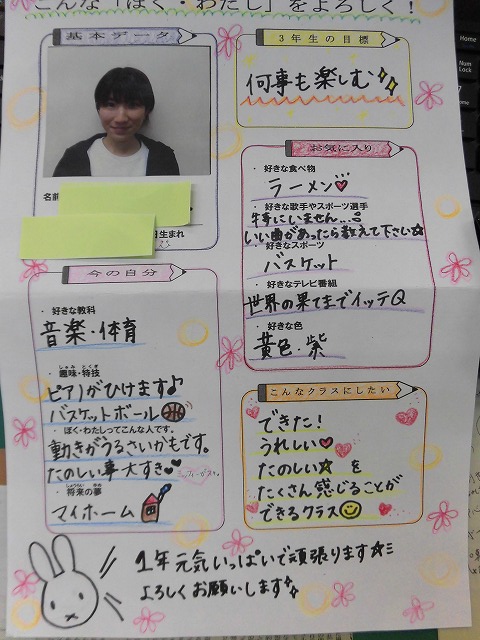 こんな「ぼく・わたし」をよろしく！
基本データ
名前
日生まれ
今の自分
・好きな教科
音楽・体育
しゅみ とくぎ
・趣味・特技
ピアノがひけます♪
バスケットボール
・ぼく・わたしってこんな人です。
動きがうるさいかもです。
たのしい事大すき♥♥
しょうらい ゆめ
・将来の夢
マイホーム
3年生の目標
何事も楽しむ
お気に入り
・好きな食べ物
ラーメン♡
・好きな歌手やスポーツ選手
特にいません...。
いい曲があったら教えて下さい☆
・好きなスポーツ
バスケット
・好きなテレビ番組
世界の果てまでイッテQ
・好きな色
黄色・紫
こんなクラスにしたい
できた！
うれしい♡
たのしい☆ を
たくさん感じることが
できるクラス
1年元気いっぱいで頑張ります☆
よろしくお願いします
Home
Num
Lock